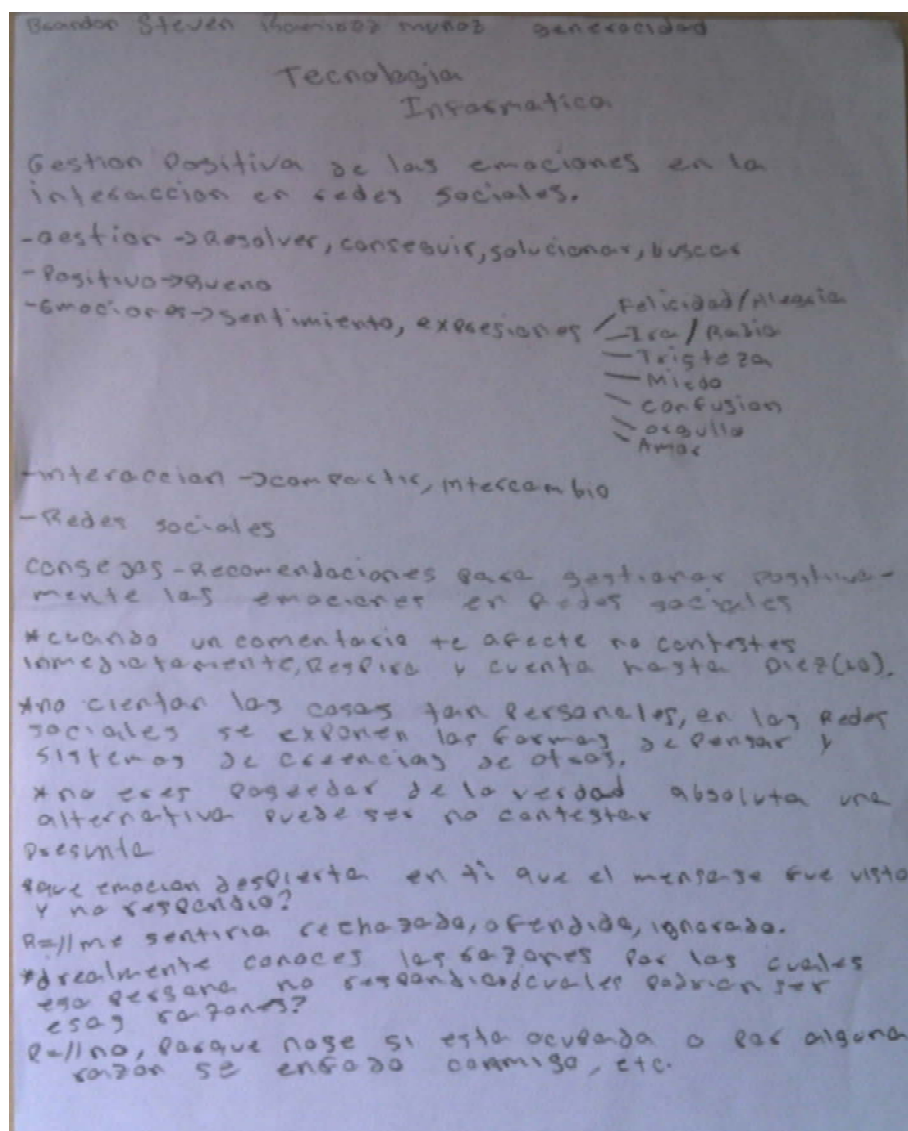 Brandon Steven muñoz generocidad
Tecnologia
Informatica
Gestion Positiva de las emociones en la
interaccion en redes sociales.
-Gestion->Resolver, conseguir, solucionar, buscar
-Positivo->Bueno
-Emociones->sentimiento, expresiones
Felicidad/Alegria
Ira/Rabia
Tristeza
Miedo
confusion
orgullo
Amor
-interaccion->compartir, intercambio
-Redes sociales
consejos-Recomendaciones para gestionar positiva-
mente las emociones en Redes sociales
*cuando un comentario te afecte no contestes
inmediatamente, Respira y cuenta hasta Diez(10).
*no cientan las cosas tan Personales, en las Redes
sociales se exponen las formas de Pensar y
sistemas de creencias de otros.
*no eres poseedor de la verdad absoluta una
alternativa puede ser no contestar
Presunta
que emocion despierta en ti que el mensaje fue visto
y no respondio?
R=//me sentiria rechazada, ofendida, ignorado.
*¿realmente conoces las razones por las cuales
esa persona no respondio¿cuales podrian ser
esas razones?
R=//no, porque nose si esta ocupada o por alguna
razon se enfado conmigo, etc.